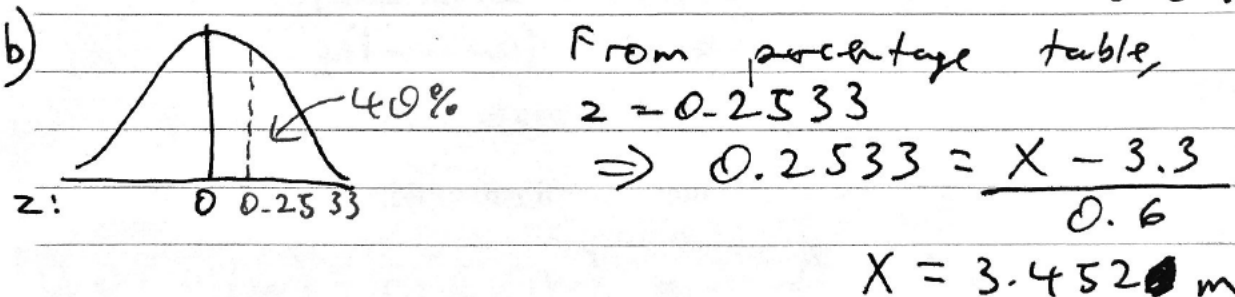 b)
40%
z: 0 0.2533
From percentage table,
z = 0.2533
⇒ 0.2533 = X - 3.3 / 0.6
X = 3.452 m